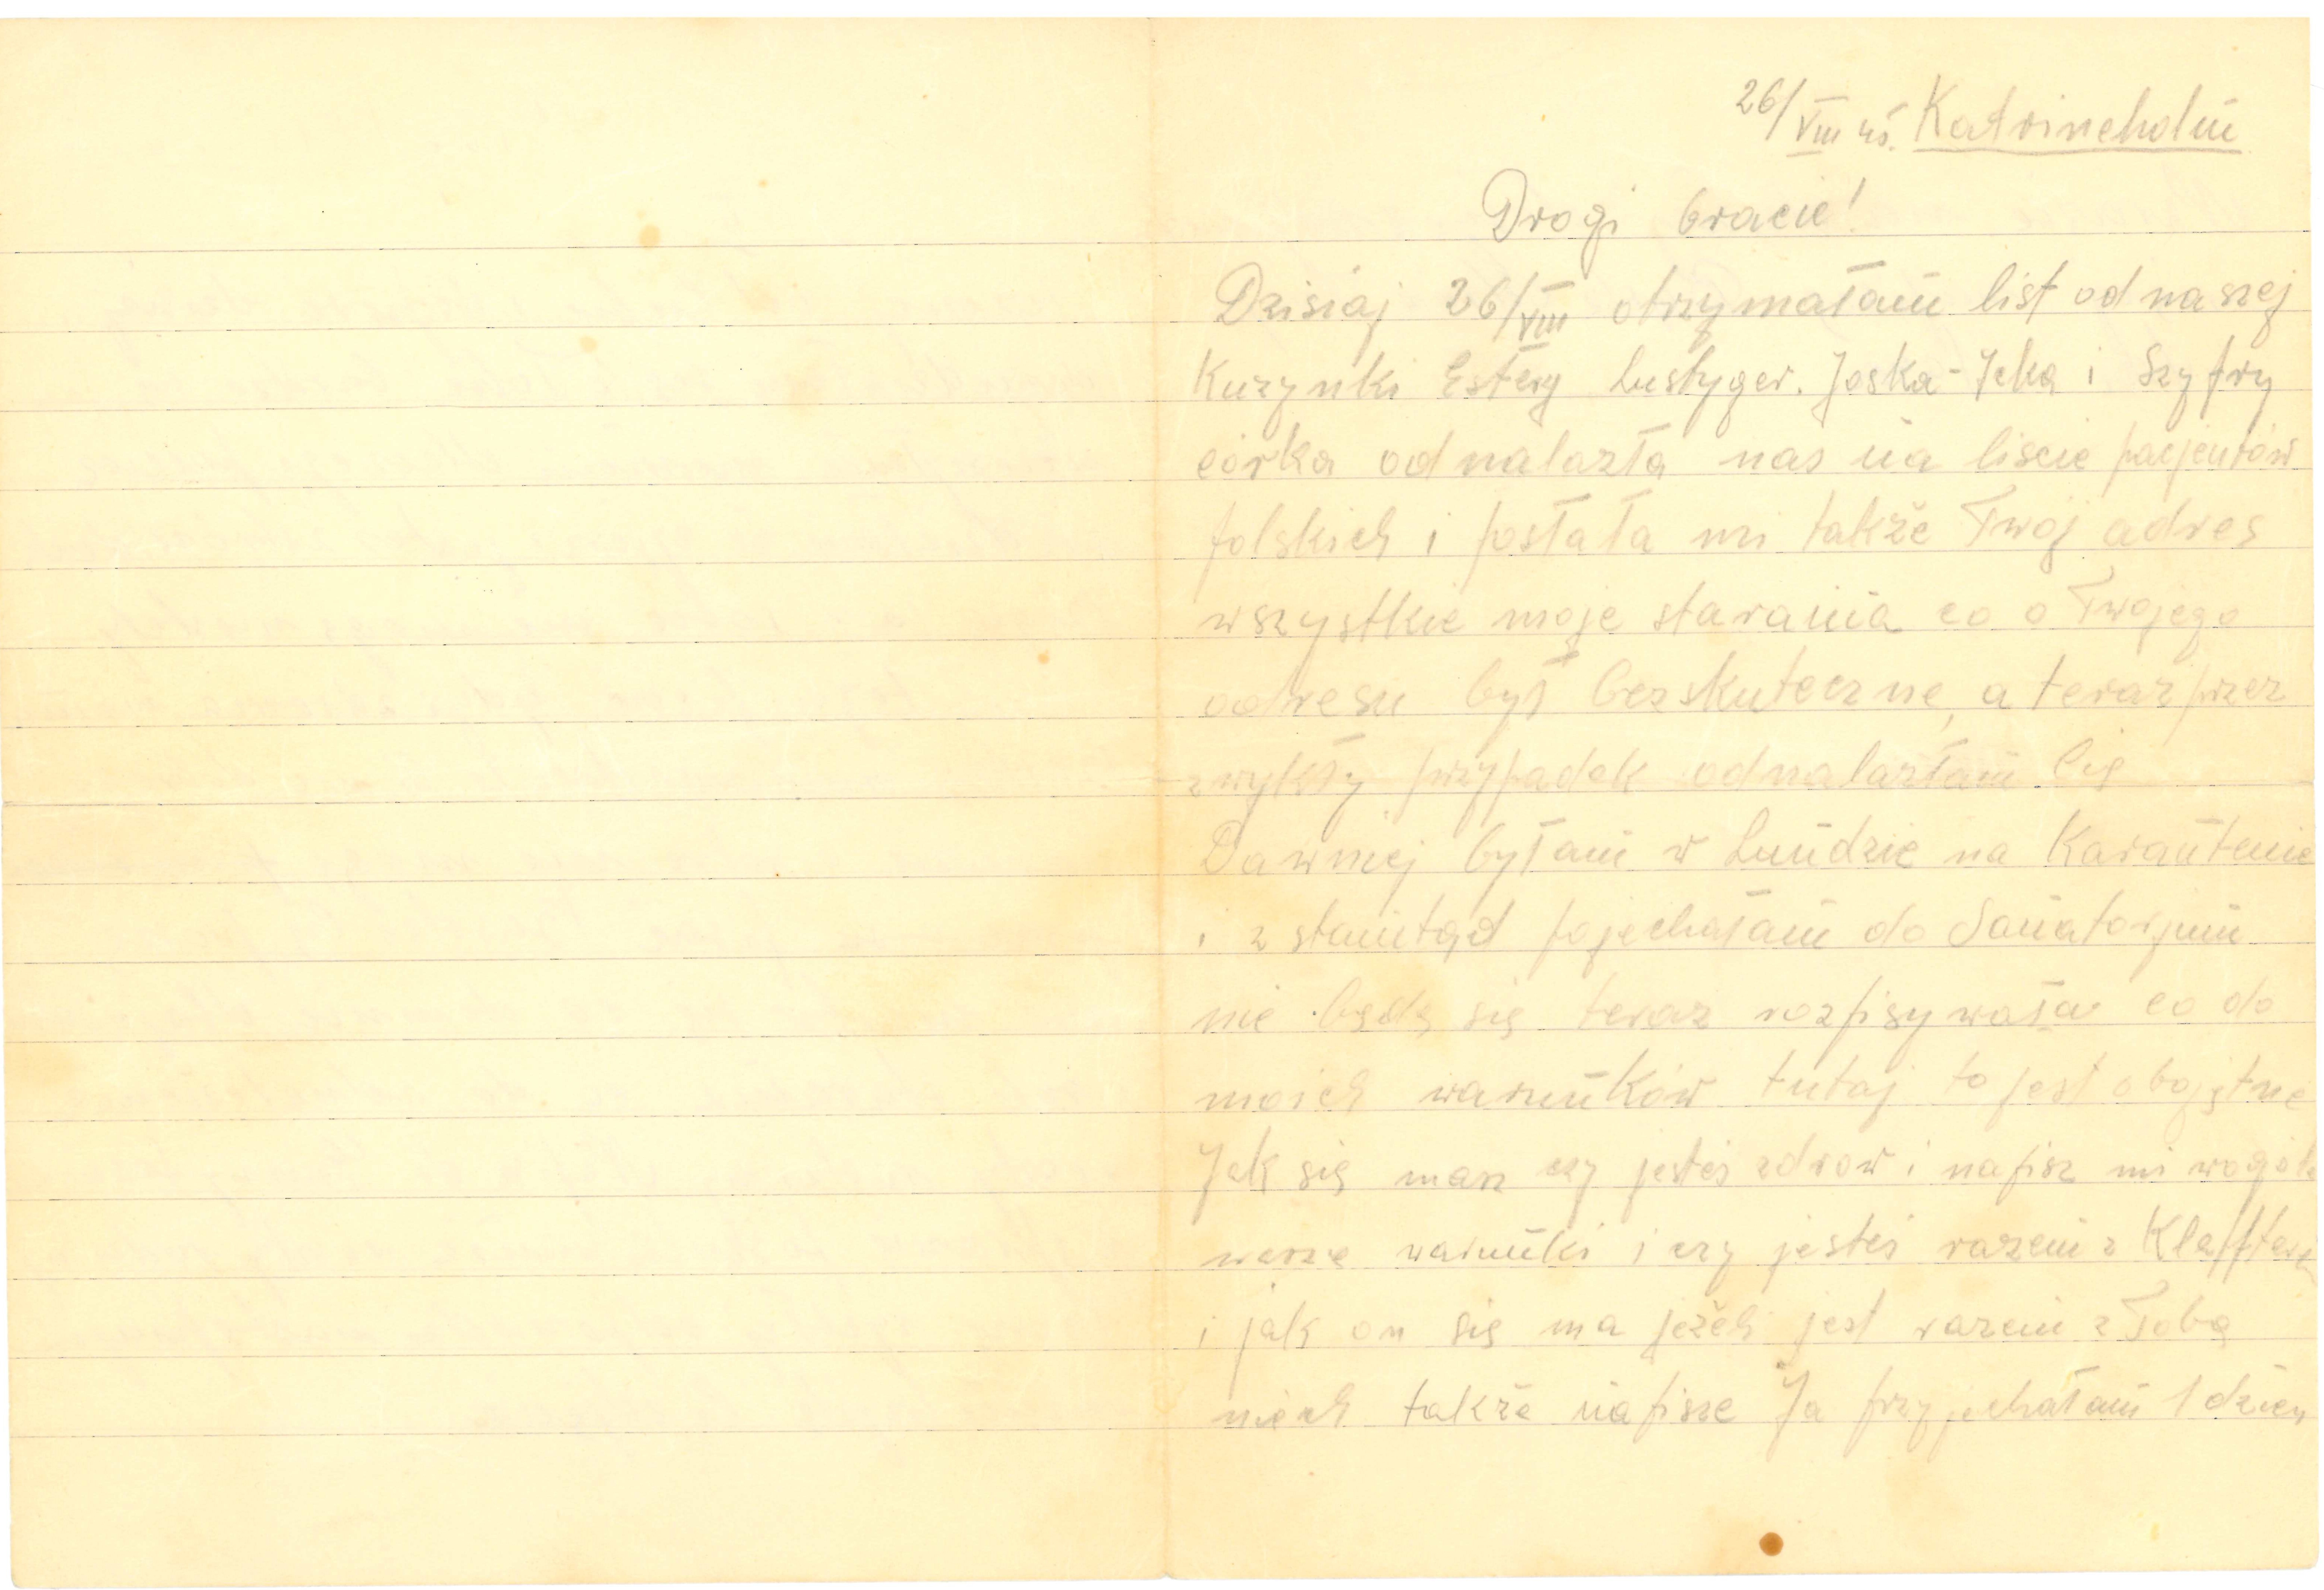 26/VIII 45. Katrineholm
Drogi bracie!
Dzisiaj 26/VIII otrzymałam list od naszej
Kuzynki Estery Lustyger. Joska-Icka i Szyfry
córka odnalazła nas na liscie pacjentów
polskich i posłała mi także Twoj adres
wszystkie moje starania co o Twojego
adresu był bezskuteczne, a teraz przez
zwykły przypadek odnalazłam Cię
Dawniej byłam w Lundzie na Karantenie
i z stamtąd pojechałam do Sanatorjum
nie będę się teraz rozpisywała co do
moich warunków tutaj to jest obojętne
Jak się masz czy jesteś zdrow i napisz mi wogole
wasze warunki i czy jesteś razem z Klaffterem
i jak on się ma jeżeli jest razem z Tobą
niech także napisze Ja przyjechałam 1 dzień